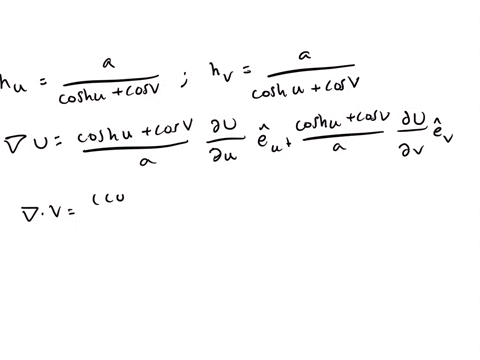 h_u = a / (coshu + cosV) ; h_V = a / (cosh u + cosV)
∇U = (coshu + cosV) / a ∂U/∂u ê_u + (coshu + cosV) / a ∂U/∂v ê_v
∇·V = (cu